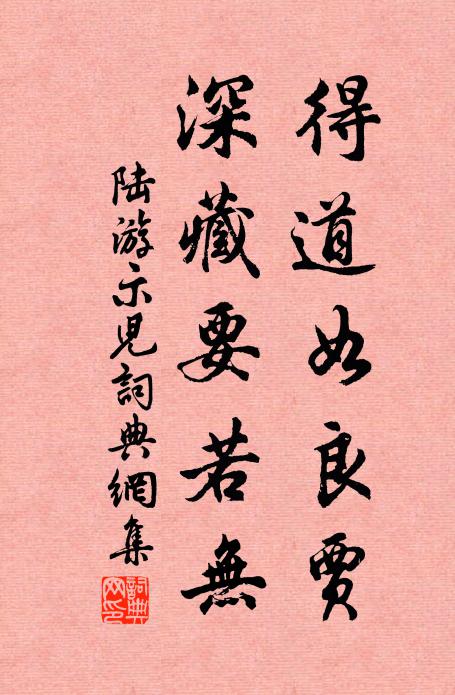 得道如良賈
深藏要若無
陆游示児詞典網集
詞典網印